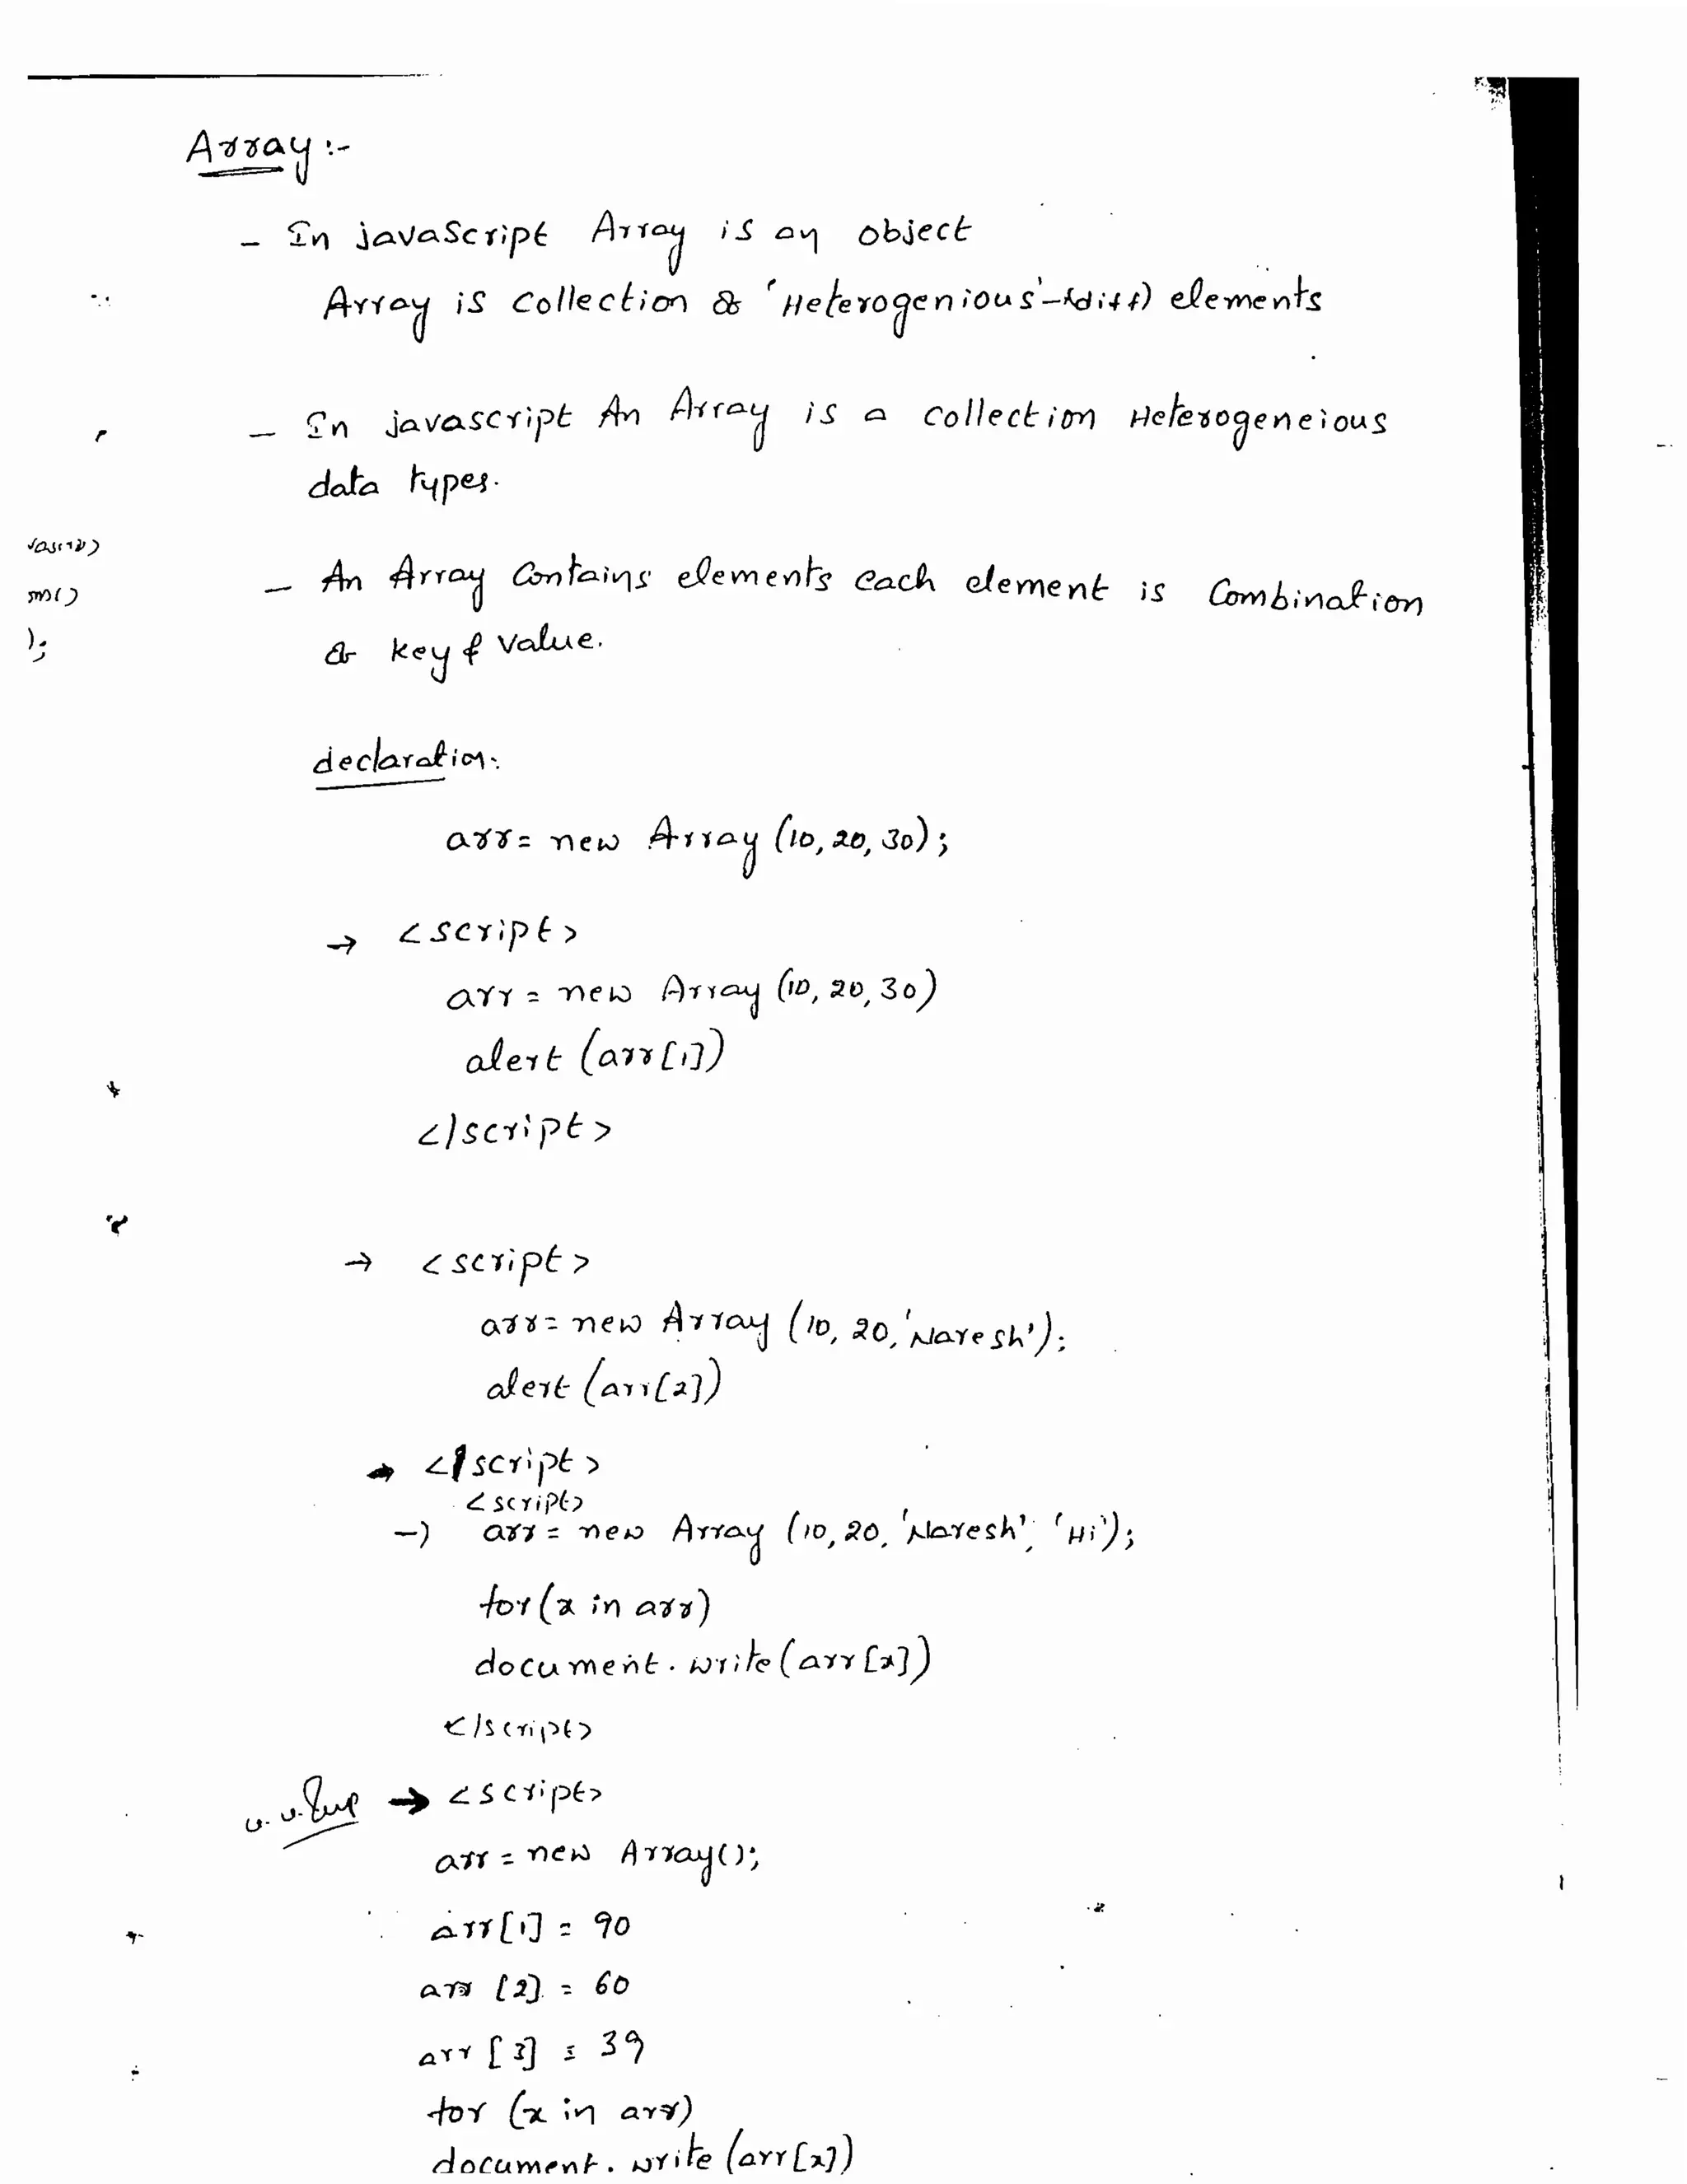 Array :-
- In javaScript Array is an object
Array is collection of 'Heterogenious'-(diff) elements
- In javascript An Array is a collection Heterogeneious
data types.
- An Array Contains elements each element is Combination
of key & value.
m()
);
declaration:
arr = new Array (10, 20, 30);
→ <script>
arr = new Array (10, 20, 30)
alert (arr[1])
</script>
→ <script>
arr = new Array (10, 20, 'Naresh');
alert (arr[2])
→ </script>
<script>
→ arr = new Array (10, 20, 'Naresh', 'Hi');
for (x in arr)
document.write(arr[x])
</script>
v.v.Imp → <script>
arr = new Array();
arr[1] = 90
arr [2] = 60
arr [3] = 39
for (x in arr)
document.write (arr[x])